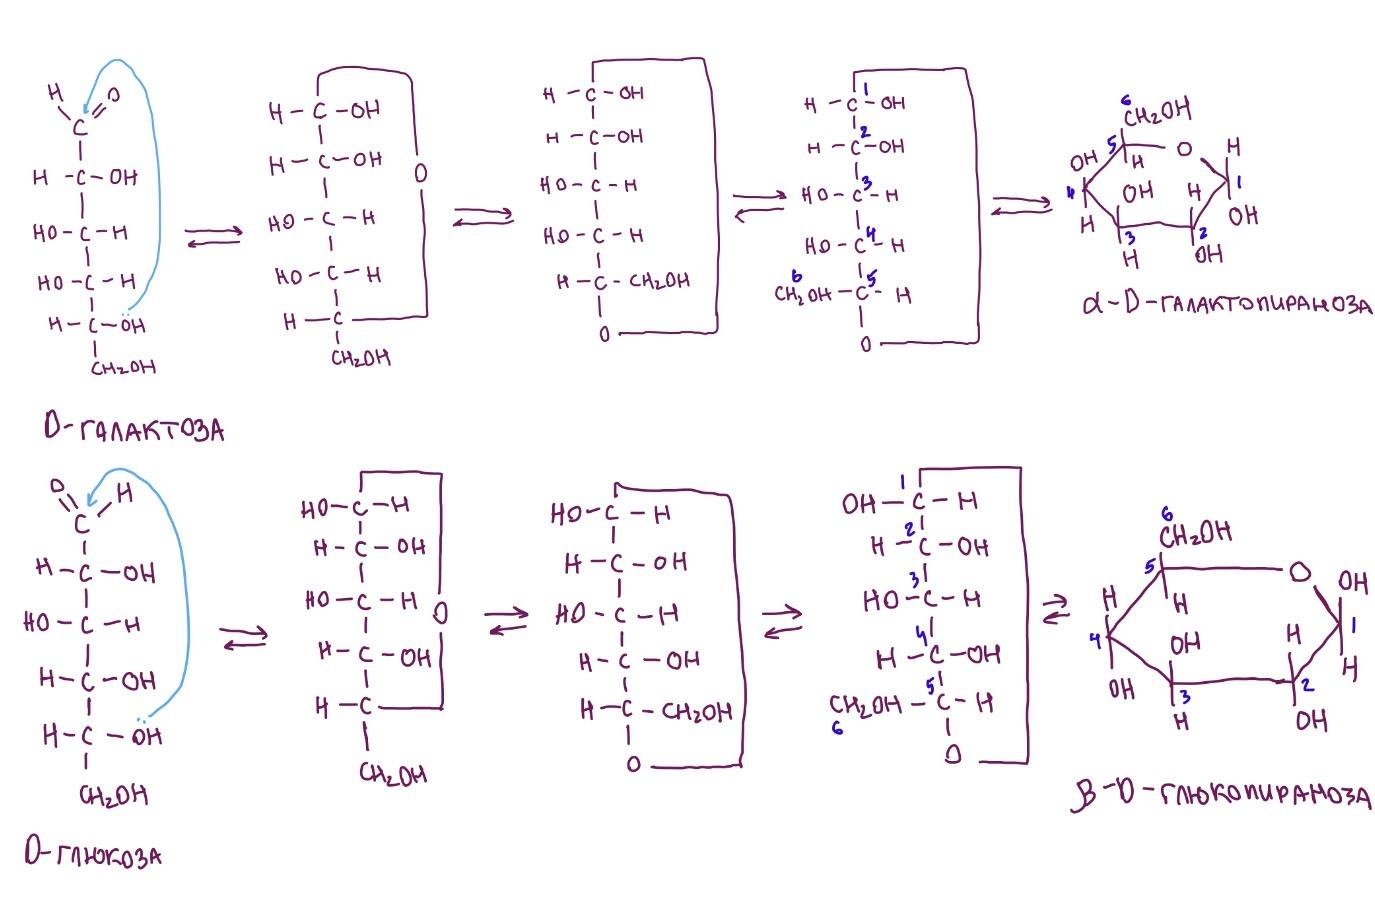 H O
C
H - C - OH
HO - C - H
HO - C - H
H - C - ÖH
CH₂OH
D-ГАЛАКТОЗА
H - C - OH
H - C - OH
O
HO - C - H
HO - C - H
H - C
CH₂OH
H - C - OH
H - C - OH
HO - C - H
HO - C - H
H - C - CH₂OH
O
1
H - C - OH
2
H - C - OH
3
HO - C - H
4
HO - C - H
6 5
CH₂OH - C - H
O
6
CH₂OH
5 O H
OH H
4 OH H 1
H OH
3 2
H OH
α-D-ГАЛАКТОПИРАНОЗА
O H
C
H - C - OH
HO - C - H
H - C - OH
H - C - ÖH
CH₂OH
D-ГЛЮКОЗА
HO - C - H
H - C - OH
HO - C - H
O
H - C - OH
H - C
CH₂OH
HO - C - H
H - C - OH
HO - C - H
H - C - OH
H - C - CH₂OH
O
1
OH - C - H
2
H - C - OH
3
HO - C - H
4
H - C - OH
5
CH₂OH - C - H
6
O
6
CH₂OH
5 O OH
H H
4 OH H 1
OH 3 2 H
H OH
β-D-ГЛЮКОПИРАНОЗА